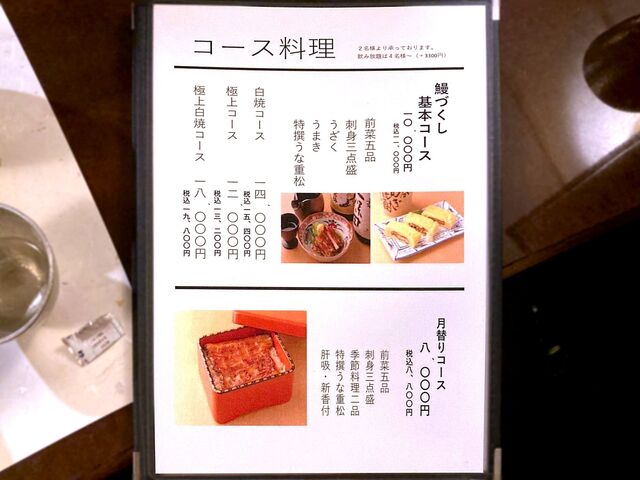 コース料理
２名様より承っております。
飲み放題は４名様〜（＋3300円）
鰻づくし
基本コース
一〇、〇〇〇円
税込一一、〇〇〇円
前菜五品
刺身三点盛
うざく
うまき
特撰うな重松
白焼コース
一四、〇〇〇円
税込一五、四〇〇円
極上コース
一二、〇〇〇円
税込一三、二〇〇円
極上白焼コース
一八、〇〇〇円
税込一九、八〇〇円
月替りコース
八、〇〇〇円
税込八、八〇〇円
前菜五品
刺身三点盛
季節料理二品
特撰うな重松
肝吸・新香付